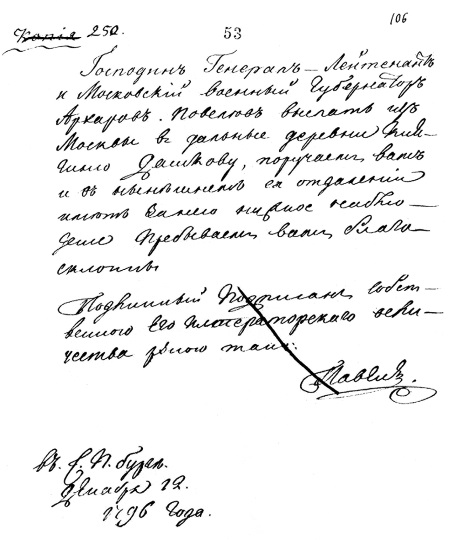 106
Копія 252. 53
Господинъ Генералъ – Лейтенантъ
и Московскій военный Губернаторъ
Архаровъ. Повелѣвъ выслать изъ
Москвы въ дальные деревни Кня-
гиню Дашкову, поручаемъ вамъ
и въ нынѣшнемъ ея отдаленіи
имѣть за нею нужное наблю-
деніе Пребываемъ вамъ блага-
склонны
Подлинный Подписанъ собст-
веннаго Его Императорскаго вели-
чества рукою тако:
Павелъ.
въ С. П. бургѣ.
Декабря 12.
1796 года.